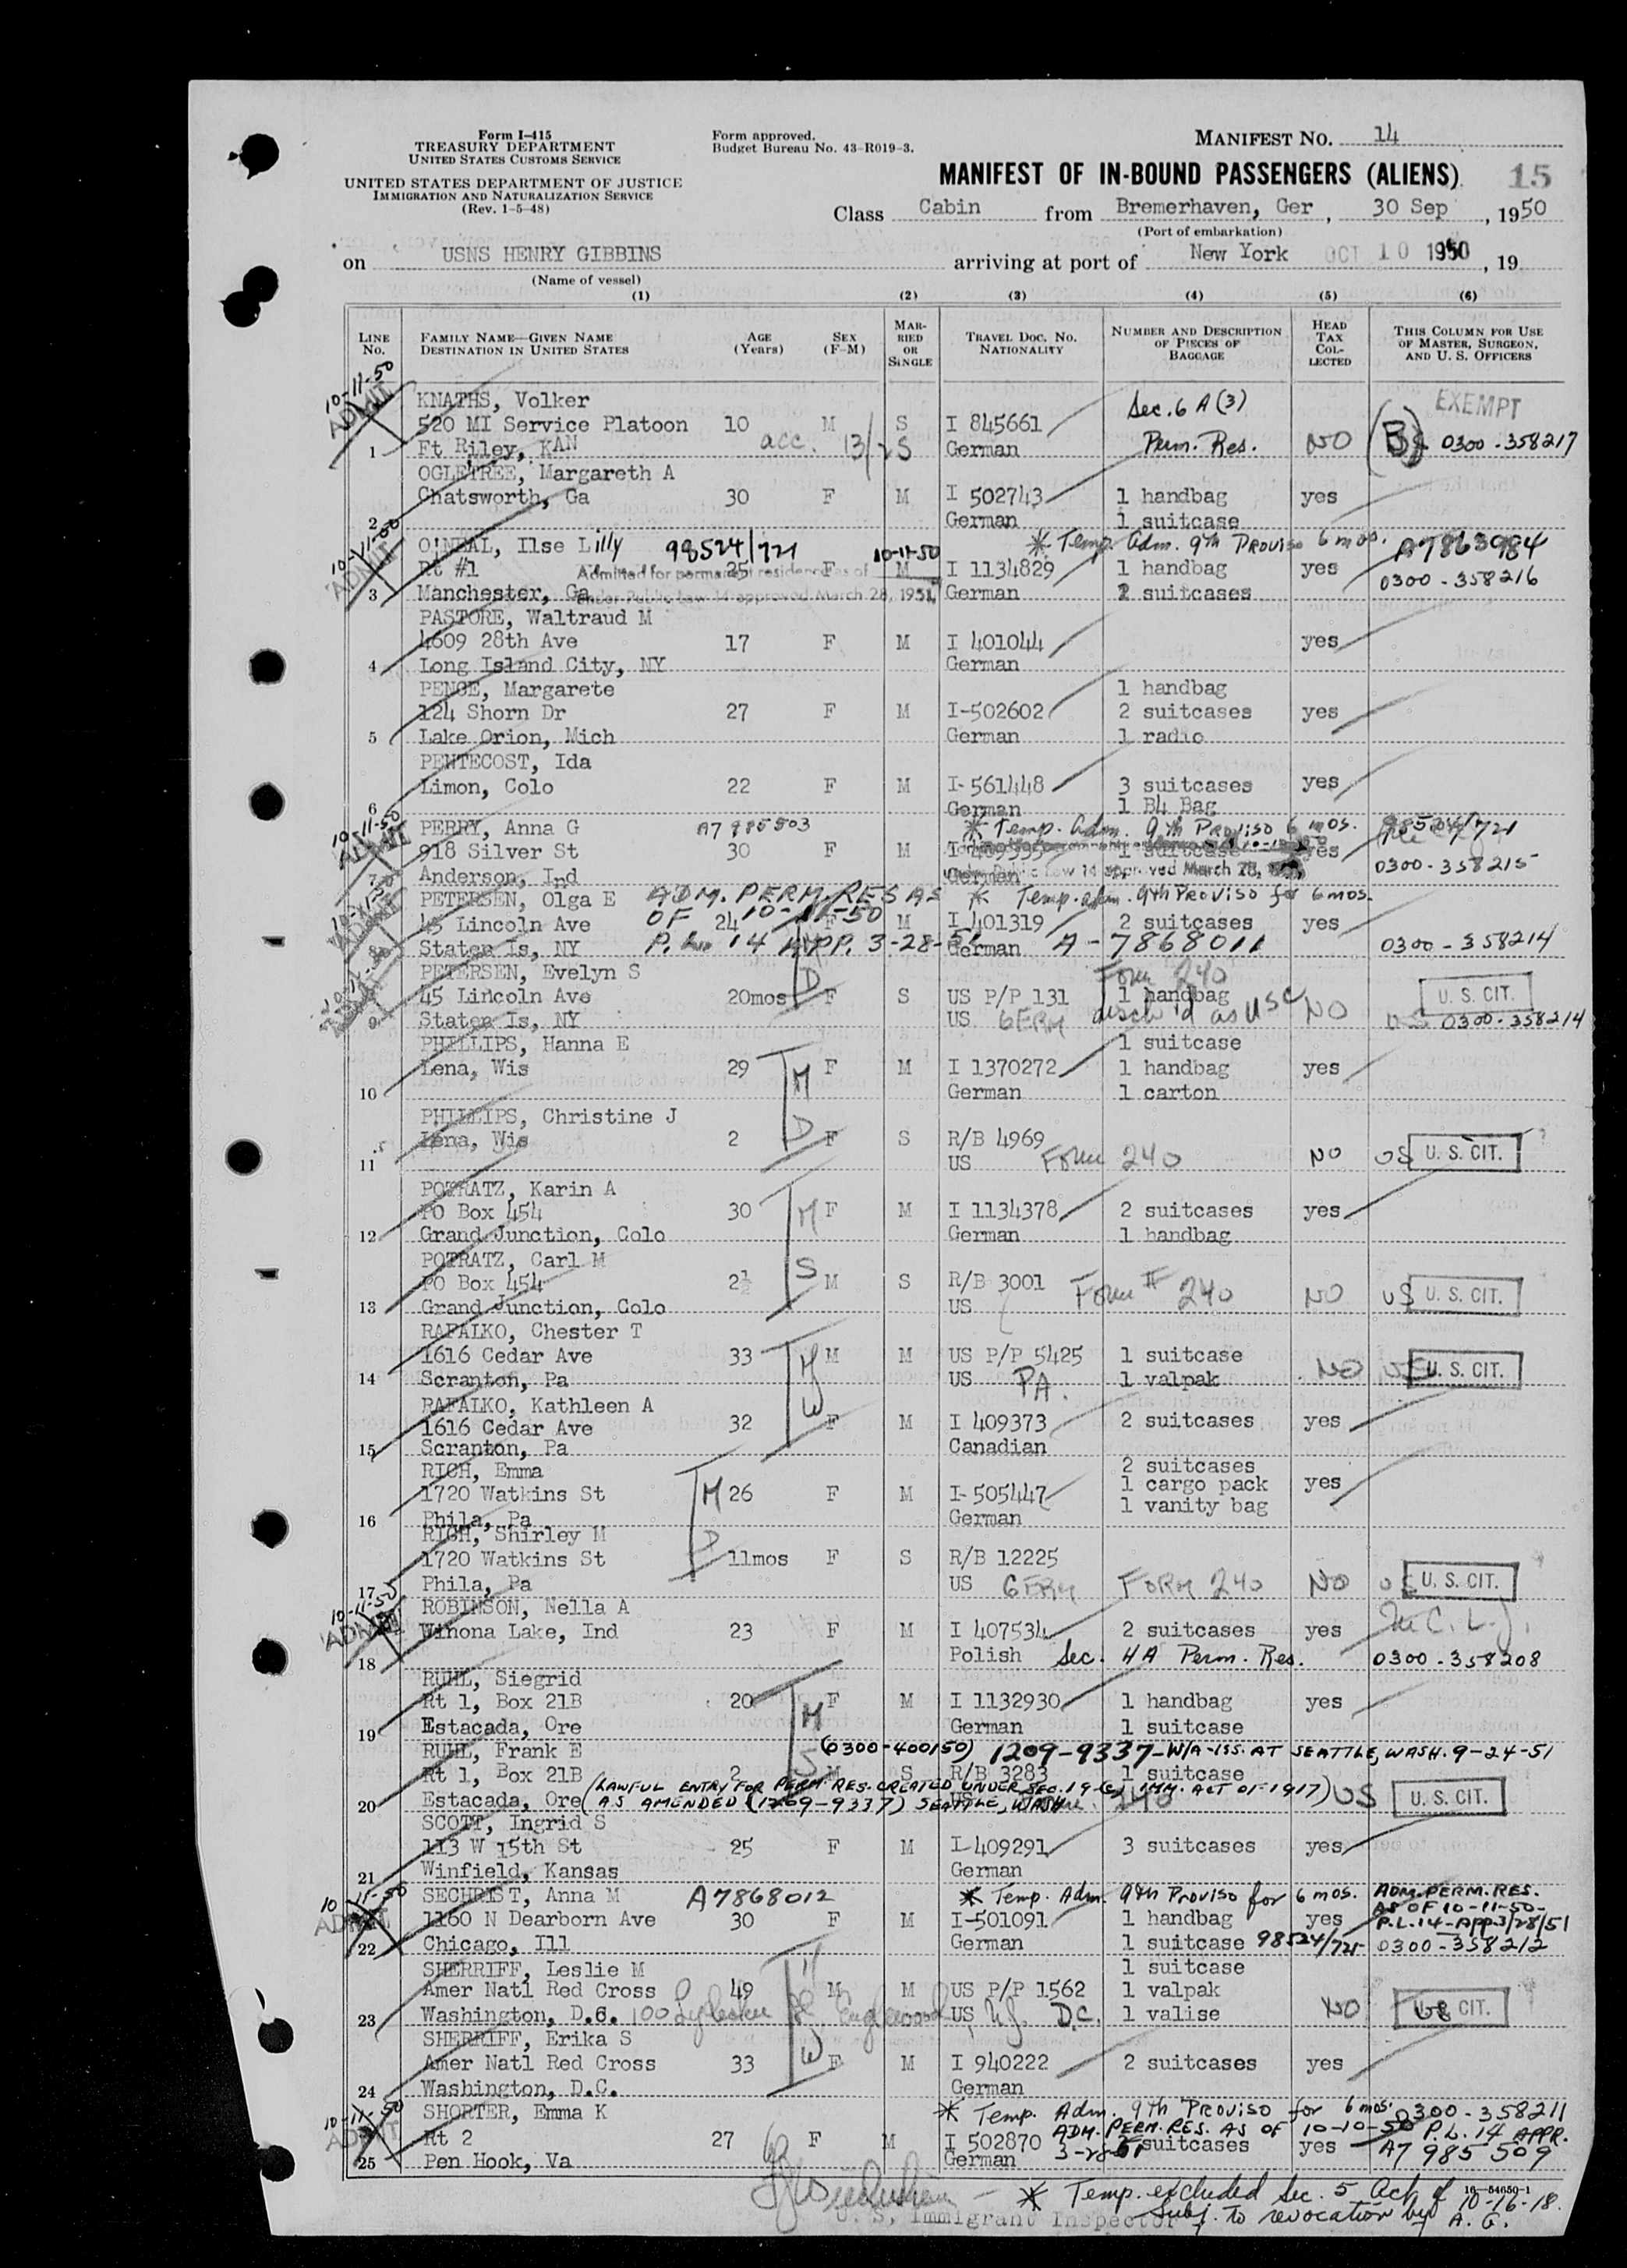 Form I-415
TREASURY DEPARTMENT
UNITED STATES CUSTOMS SERVICE
UNITED STATES DEPARTMENT OF JUSTICE
IMMIGRATION AND NATURALIZATION SERVICE
(Rev. 1-5-48)
Form approved.
Budget Bureau No. 43-R019-3.
MANIFEST NO. 14
MANIFEST OF IN-BOUND PASSENGERS (ALIENS) 15
Class Cabin from Bremerhaven, Ger, 30 Sep, 1950
(Port of embarkation)
on USNS HENRY GIBBINS arriving at port of New York OCT 10 1950, 19
(Name of vessel)
(1) (2) (3) (4) (5) (6)
LINE No. FAMILY NAME—GIVEN NAME DESTINATION IN UNITED STATES AGE (Years) SEX (F-M) MARRIED OR SINGLE TRAVEL DOC. NO. NATIONALITY NUMBER AND DESCRIPTION OF PIECES OF BAGGAGE HEAD TAX COLLECTED THIS COLUMN FOR USE OF MASTER, SURGEON, AND U. S. OFFICERS
10-11-50 ADMIT
KNATHS, Volker Sec. 6 A (3) EXEMPT
520 MI Service Platoon 10 M S I 845661
1 Ft Riley, KAN acc. 13/2 S German Perm. Res. NO (B) 0300-358217
OGLETREE, Margareth A
Chatsworth, Ga 30 F M I 502743 1 handbag yes
2 German 1 suitcase
10-11-50 ADMIT
O'NEAL, Ilse Lilly 98524/721 10-11-50 * Temp. Adm. 9th Proviso 6 mos. A7863984
Rt #1 25 F M I 1134829 1 handbag yes 0300-358216
Admitted for permanent residence as of
3 Manchester, Ga under Public Law 14 approved March 28, 1951 German 2 suitcases
PASTORE, Waltraud M
4609 28th Ave 17 F M I 401044 yes
4 Long Island City, NY German
PENCE, Margarete 1 handbag
124 Shorn Dr 27 F M I-502602 2 suitcases yes
5 Lake Orion, Mich German 1 radio
PENTECOST, Ida
Limon, Colo 22 F M I-561448 3 suitcases yes
6 German 1 B4 Bag
10-11-50 ADMIT
PERRY, Anna G A7985503 * Temp. Adm. 9th Proviso 6 mos.
918 Silver St 30 F M 1 suitcase yes 0300-358215
7 Anderson, Ind German Law 14 approved March 28,
PETERSEN, Olga E ADM. PERM. RES AS * Temp. adm. 9th Proviso for 6 mos.
45 Lincoln Ave OF 24 10-11-50 F M I 401319 2 suitcases yes
Staten Is, NY P.L. 14 APP. 3-28-51 German A-7868011 0300-358214
PETERSEN, Evelyn S D Form 240
45 Lincoln Ave 20mos F S US P/P 131 1 handbag U. S. CIT.
9 Staten Is, NY US GERM disch'd as USC NO US 0300-358214
PHILLIPS, Hanna E 1 suitcase
Lena, Wis 29 M F M I 1370272 1 handbag yes
10 German 1 carton
PHILLIPS, Christine J
Lena, Wis 2 D F S R/B 4969
11 US Form 240 NO US U. S. CIT.
POTRATZ, Karin A
PO Box 454 30 M F M I 1134378 2 suitcases yes
12 Grand Junction, Colo German 1 handbag
POTRATZ, Carl M
PO Box 454 2½ S M S R/B 3001
13 Grand Junction, Colo US Form # 240 NO US U. S. CIT.
RAPALKO, Chester T
1616 Cedar Ave 33 H M M US P/P 5425 1 suitcase
14 Scranton, Pa US PA. 1 valpak NO US U. S. CIT.
RAPALKO, Kathleen A
1616 Cedar Ave 32 W F M I 409373 2 suitcases yes
15 Scranton, Pa Canadian
RICH, Emma 2 suitcases
1720 Watkins St M 26 F M I-505447 1 cargo pack yes
16 Phila, Pa German 1 vanity bag
RICH, Shirley M
1720 Watkins St D 11mos F S R/B 12225
17 Phila, Pa US GERM FORM 240 NO US U. S. CIT.
10-11-50 ADMIT
ROBINSON, Nella A
Winona Lake, Ind 23 F M I 407534 2 suitcases yes
18 Polish Sec. 4A Perm. Res. 0300-358208
RUHL, Siegrid
Rt 1, Box 21B 20 M F M I 1132930 1 handbag yes
19 Estacada, Ore German 1 suitcase
RUHL, Frank E (0300-400150) 1209-9337-W/A-ISS. AT SEATTLE, WASH. 9-24-51
Rt 1, Box 21B 2 S M S R/B 3283 1 suitcase
(LAWFUL ENTRY FOR PERM. RES. CREATED UNDER SEC. 19-(c) IMM. ACT OF 1917)
20 Estacada, Ore (AS AMENDED (1209-9337) SEATTLE, WASH 240 US U. S. CIT.
SCOTT, Ingrid S
113 W 15th St 25 F M I-409291 3 suitcases yes
21 Winfield, Kansas German
10-11-50 ADMIT
SECHRIST, Anna M A7868012 * Temp. Adm. 9th Proviso for 6 mos. ADM. PERM. RES.
1160 N Dearborn Ave 30 F M I-501091 1 handbag yes AS OF 10-11-50- P.L.14-App 3/28/51
22 Chicago, Ill German 1 suitcase 98524/725 0300-358212
SHERRIFF, Leslie M 1 suitcase
Amer Natl Red Cross 49 H M M US P/P 1562 1 valpak
23 Washington, D.C. 100 Englewood US D.C. 1 valise NO US CIT.
SHERRIFF, Erika S
Amer Natl Red Cross 33 W F M I 940222 2 suitcases yes
24 Washington, D.C. German
10-11-50 ADMIT
SHORTER, Emma K * Temp. Adm. 9th Proviso for 6 mos. 0300-358211
ADM. PERM. RES. AS OF 10-10-50 P.L. 14 APPR.
Rt 2 27 F M I 502870 3-28-51 suitcases yes A7 985 509
25 Pen Hook, Va German
16-54650-1
* Temp. excluded Sec. 5 Act of 10-16-18.
U. S. Immigrant Inspector Subj. to revocation by A. G.